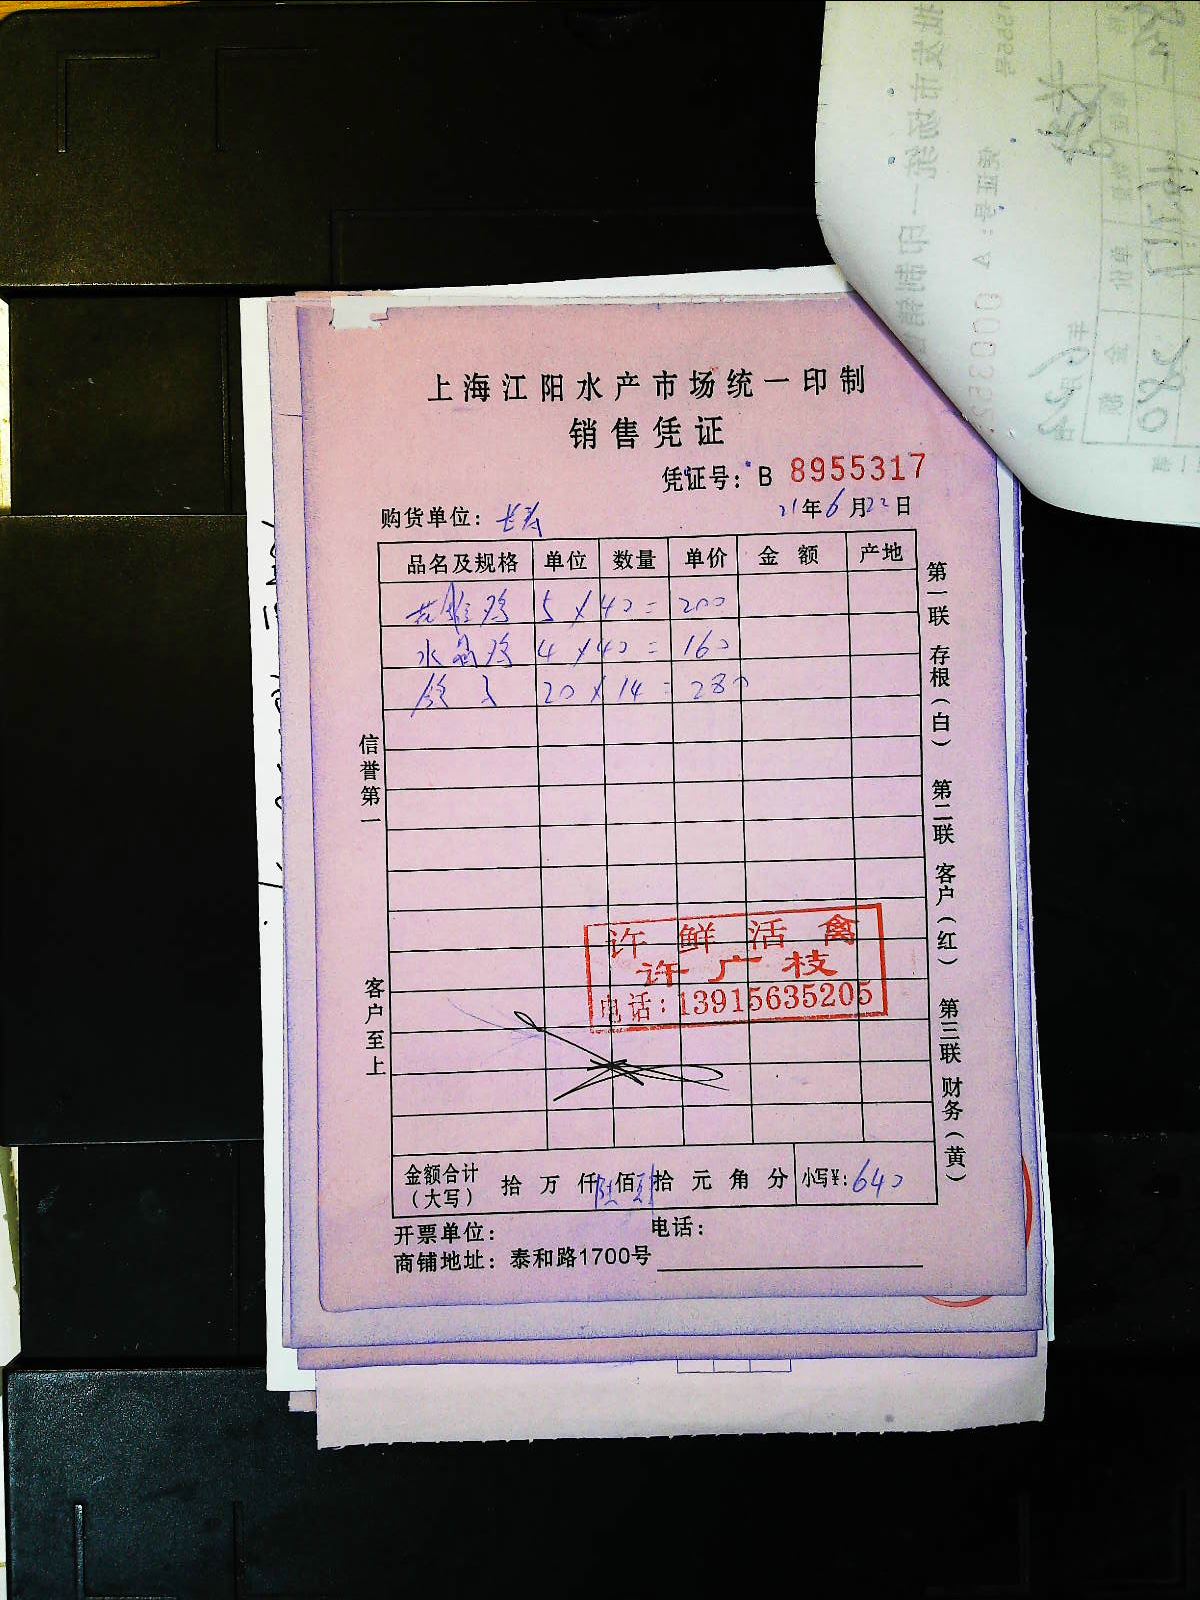 上海江阳水产市场统一印制
销售凭证
凭证号: B 8955317
购货单位: 长寿 21年6月22日
品名及规格 单位 数量 单价 金额 产地
鸡 5 × 40 = 200
水晶鸡 4 × 40 = 160
20 × 14 = 280
信誉第一
客户至上
第一联 存根(白) 第二联 客户(红) 第三联 财务(黄)
许鲜活禽
许广枝
电话:13915635205
金额合计(大写) 拾 万 仟 陆佰 肆拾 元 角 分 小写¥: 640
开票单位: 电话:
商铺地址: 泰和路1700号